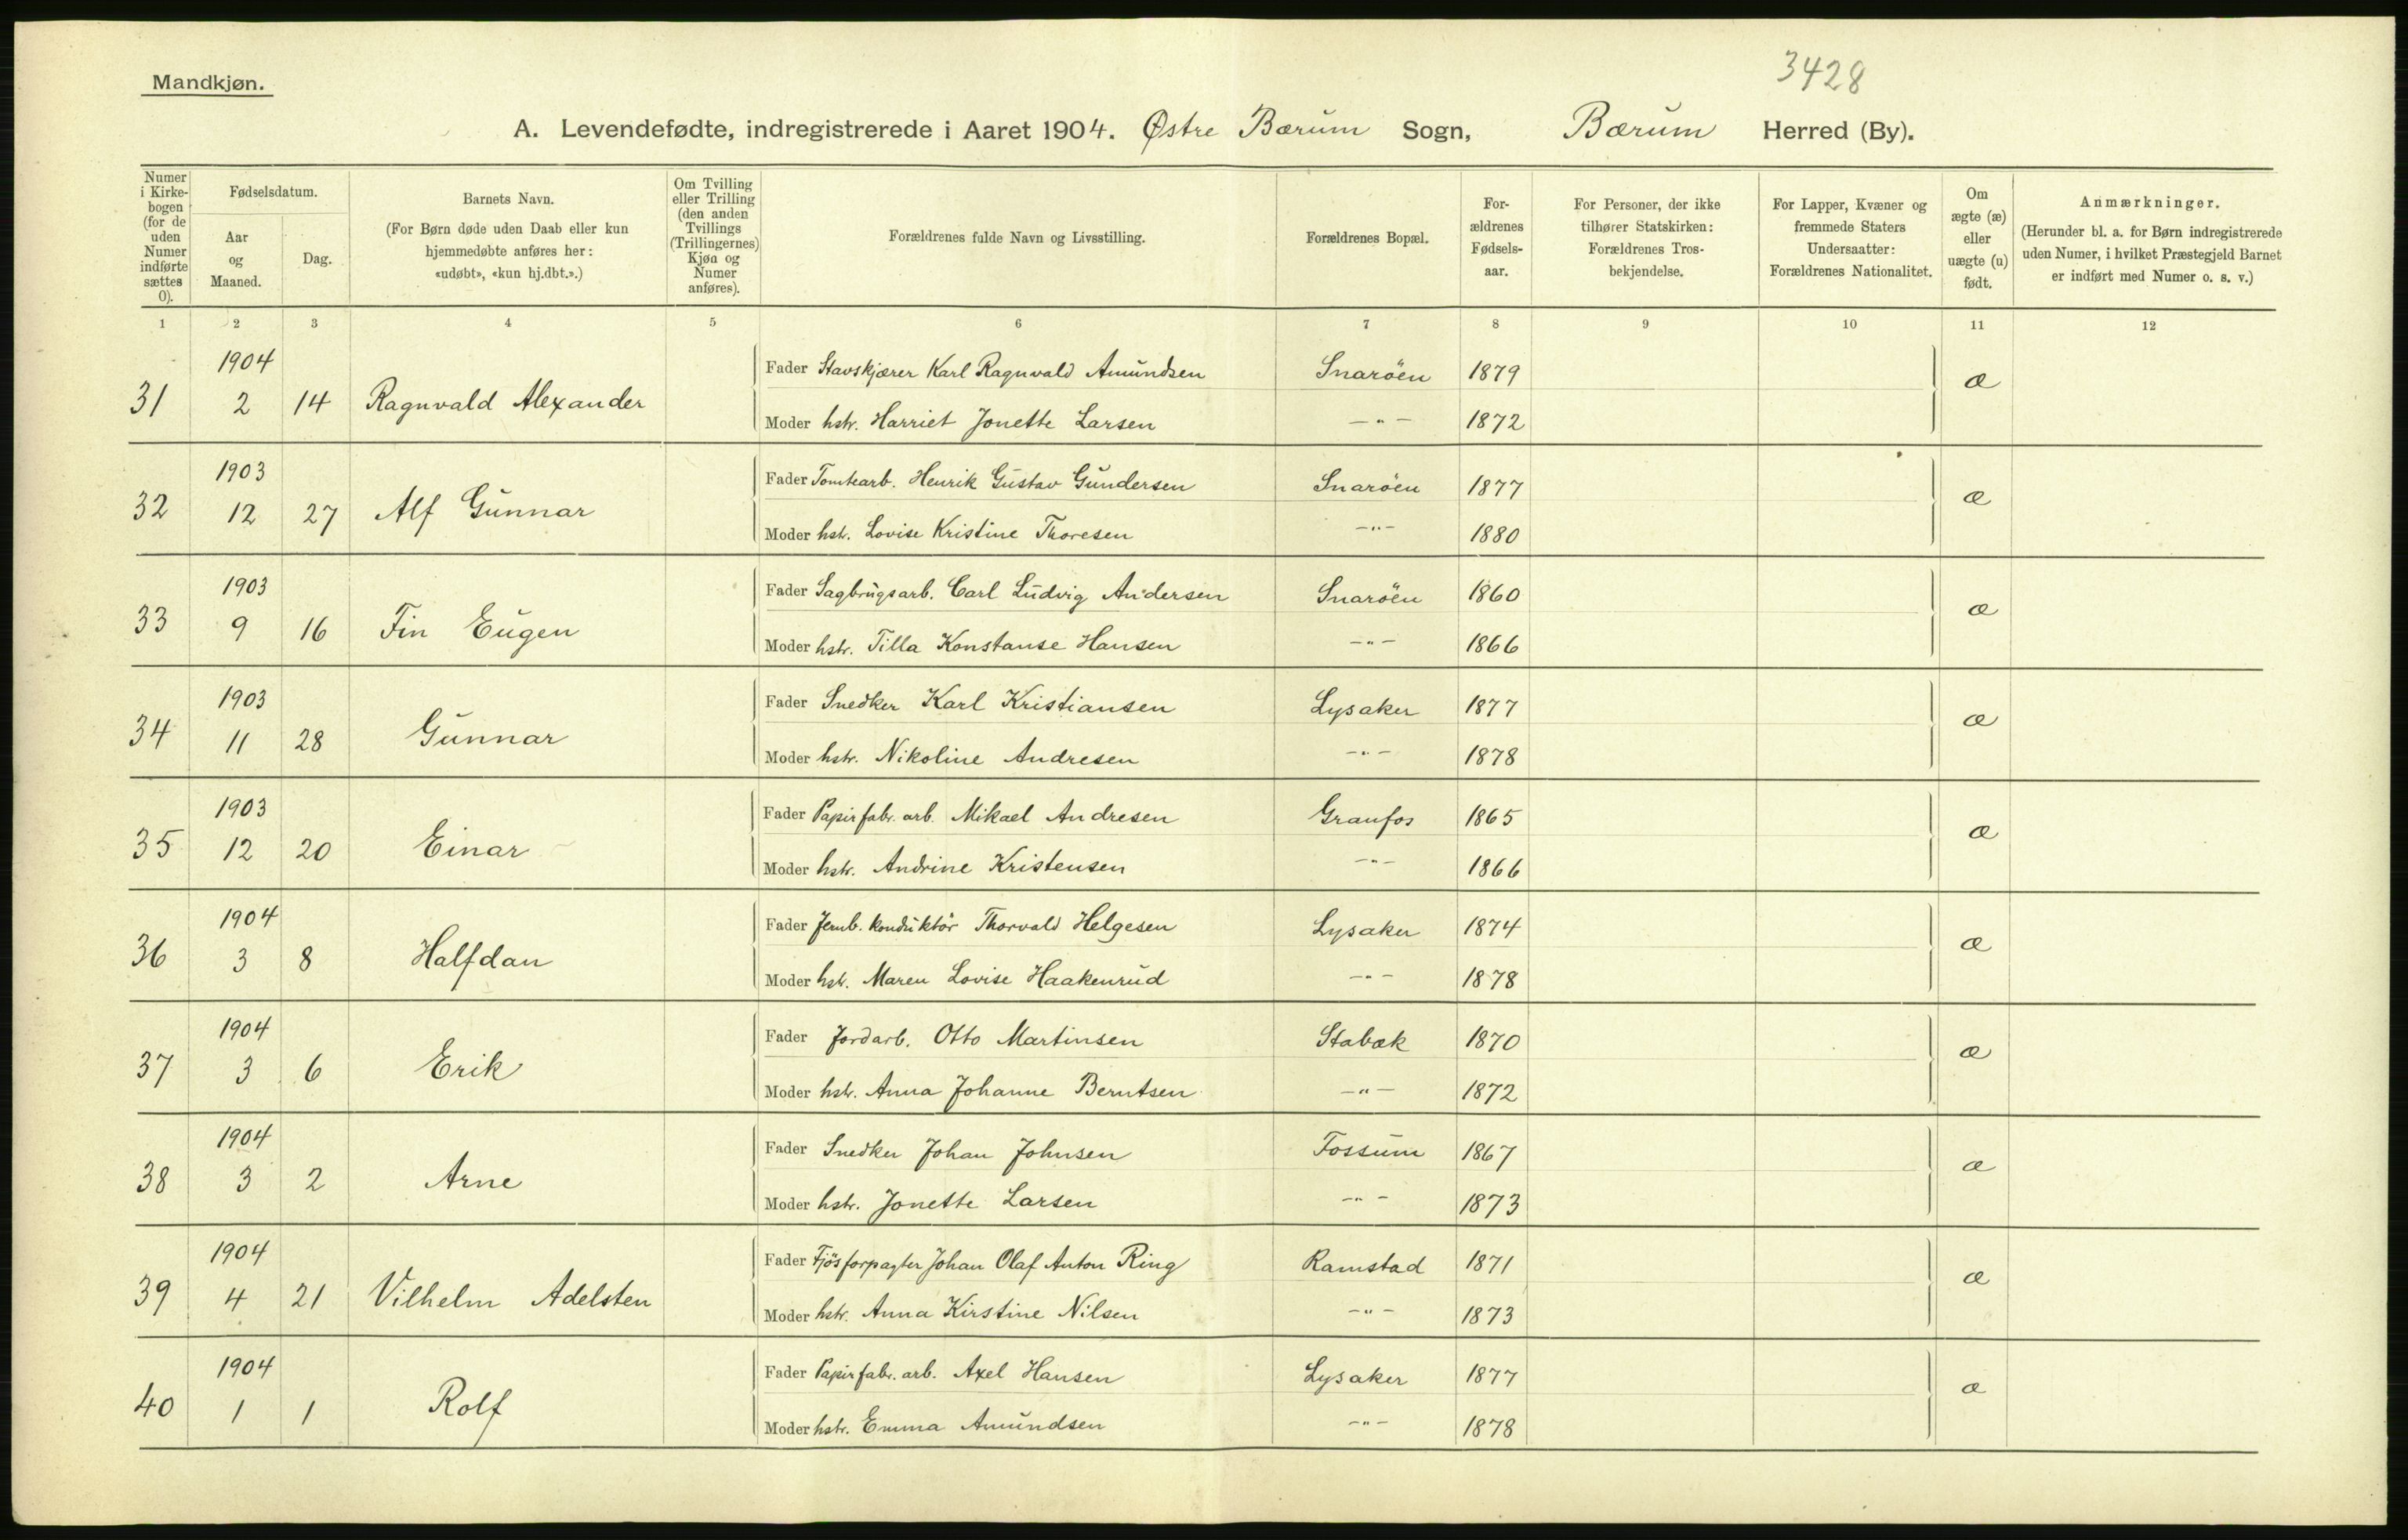 3428
Mandkjøn.
A. Levendefødte, indregistrerede i Aaret 1904. Østre Bærum Sogn, Bærum Herred (By).
Numer i Kirkebogen (for de uden Numer indførte sættes 0).
Fødselsdatum.
Aar og Maaned.
Dag.
Barnets Navn.
(For Børn døde uden Daab eller kun hjemmedøbte anføres her: «udøbt», «kun hj.dbt.».)
Om Tvilling eller Trilling (den anden Tvillings (Trillingernes) Kjøn og Numer anføres).
Forældrenes fulde Navn og Livsstilling.
Forældrenes Bopæl.
Forældrenes Fødselsaar.
For Personer, der ikke tilhører Statskirken: Forældrenes Trosbekjendelse.
For Lapper, Kvæner og fremmede Staters Undersaatter: Forældrenes Nationalitet.
Om ægte (æ) eller uægte (u) født.
Anmærkninger.
(Herunder bl. a. for Børn indregistrerede uden Numer, i hvilket Præstegjeld Barnet er indført med Numer o. s. v.)
1 2 3 4 5 6 7 8 9 10 11 12
1904 Fader Stavskjærer Karl Ragnvald Amundsen Snaröen 1879 æ
31 2 14 Ragnvald Alexander
Moder hstr. Harriet Jonette Larsen —"— 1872
1903 Fader Tomtearb. Henrik Gustav Gundersen Snaröen 1877 æ
32 12 27 Alf Gunnar
Moder hstr. Lovise Kristine Thoresen —"— 1880
1903 Fader Sagbrugsarb. Carl Ludvig Andersen Snaröen 1860 æ
33 9 16 Fin Eugen
Moder hstr. Tilla Konstanse Hansen —"— 1866
1903 Fader Snedker Karl Kristiansen Lysaker 1877 æ
34 11 28 Gunnar
Moder hstr. Nikoline Andresen —"— 1878
1903 Fader Papirfabr. arb. Mikael Andresen Granfos 1865 æ
35 12 20 Einar
Moder hstr. Andrine Kristensen —"— 1866
1904 Fader Jernb. konduktör Thorvald Helgesen Lysaker 1874 æ
36 3 8 Halfdan
Moder hstr. Maren Lovise Haakenrud —"— 1878
1904 Fader Jordarb. Otto Martinsen Stabæk 1870 æ
37 3 6 Erik
Moder hstr. Anna Johanne Berntsen —"— 1872
1904 Fader Snedker Johan Johnsen Fossum 1867 æ
38 3 2 Arne
Moder hstr. Jonette Larsen —"— 1873
1904 Fader Fjösforpagter Johan Olaf Anton Ring Ramstad 1871 æ
39 4 21 Vilhelm Adelsten
Moder hstr. Anna Kirstine Nilsen —"— 1873
1904 Fader Papirfabr. arb. Axel Hansen Lysaker 1877 æ
40 1 1 Rolf
Moder hstr. Emma Amundsen —"— 1878